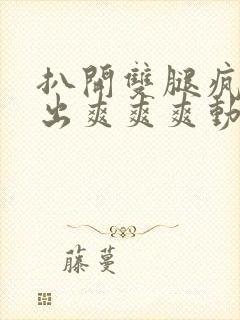 扒開雙腿瘋
出爽爽爽動
藤蔓